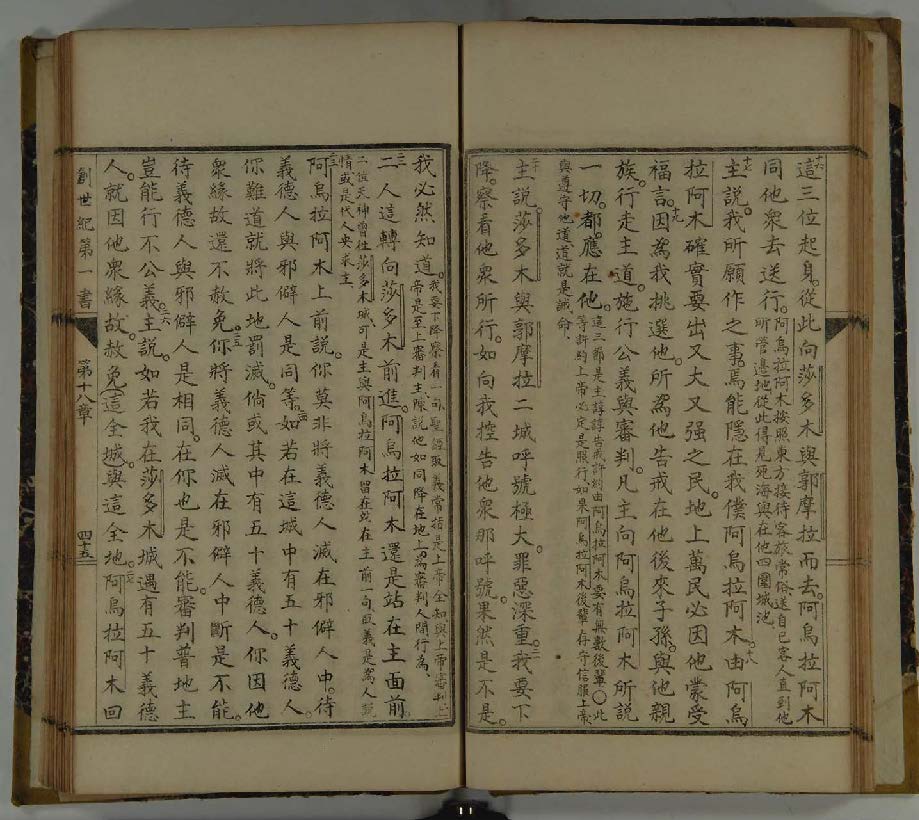 十六這三位起身。從此向莎多木與郭摩拉而去。阿烏拉阿木
同他衆去送行。阿烏拉阿木按照東方接待客旅常俗送自己客人直到他
所管邊地從此得見死海與在他四圍城池
十七主說。我所願作之事。焉能隱在我僕阿烏拉阿木。十八由阿烏
拉阿木確實要出又大又强之民。地上萬民必因他蒙受
福言。十九因爲我挑選他。所爲他告戒在他後來子孫。與他親
族。行走主道。施行公義與審判。凡主向阿烏拉阿木所說
一切。都應在他。這三節是主諄諄告戒許約由阿烏拉阿木要有無數後輩〇此
等新約上帝必定是眼行如果阿烏拉阿木後輩存守信服上帝
與遵守他道道就是誡命
二十主說。莎多木與郭摩拉二城呼號極大。罪惡深重。二一我要下
降。察看他衆所行。如向我控告他衆那呼號。果然是不是。
我必然知道。我要下降察看一句聖經取義常指是上帝全知與上帝審判上
帝是至上審判主。陳說他如同降在地上爲審判人間行爲、
二二二人這轉向莎多木前進。阿烏拉阿木還是站在主面前。
二位天神曾往莎多木城可是主與阿烏拉阿木留在站在主前一句取義是爲人說
情或是代人央求主
二三阿烏拉阿木上前說。你莫非將義德人滅在邪僻人中。待
義德人與邪僻人是同等。二四如若在這城中有五十義德人。
你難道就將此地罰滅。倘或其中有五十義德人。你因他
衆緣故還不赦免。二五你將義德人滅在邪僻人中斷是不能。
待義德人與邪僻人是相同。在你也是不能。審判普地主
豈能行不公義。二六主說。如若我在莎多木城遇有五十義德
人。就因他衆緣故。赦免這全城。與這全地。二七阿烏拉阿木回
創世紀第一書
第十八章
四十五